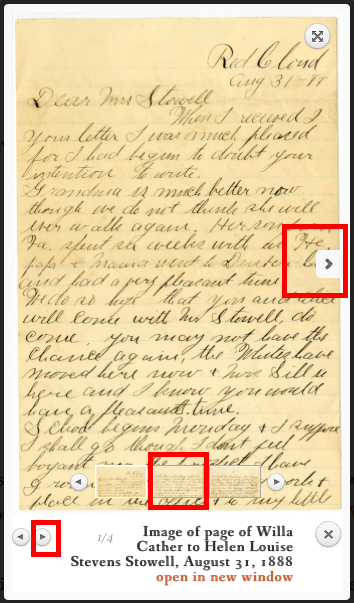 Red Cloud
Aug 31-88
Dear Mrs Stowell
When I received
your letter I was much pleased
for I had begun to doubt your
intention to write.
Grandma is much better now
though we do not think she will
ever walk again. Her son
Va. spent six weeks with us
papa + mama went to Denver
and had a very pleasant time
We do so hope that you and
will come with Mr Stowell, do
come, you may not have the
chance again, the Whites have
moved here now + Mrs Sill is
here and I know you would
have a pleasant time.
School begins Monday + I suppose
I shall go though I don't feel
have
work +
place in + to my little
1/4
Image of page of Willa
Cather to Helen Louise
Stevens Stowell, August 31, 1888
open in new window